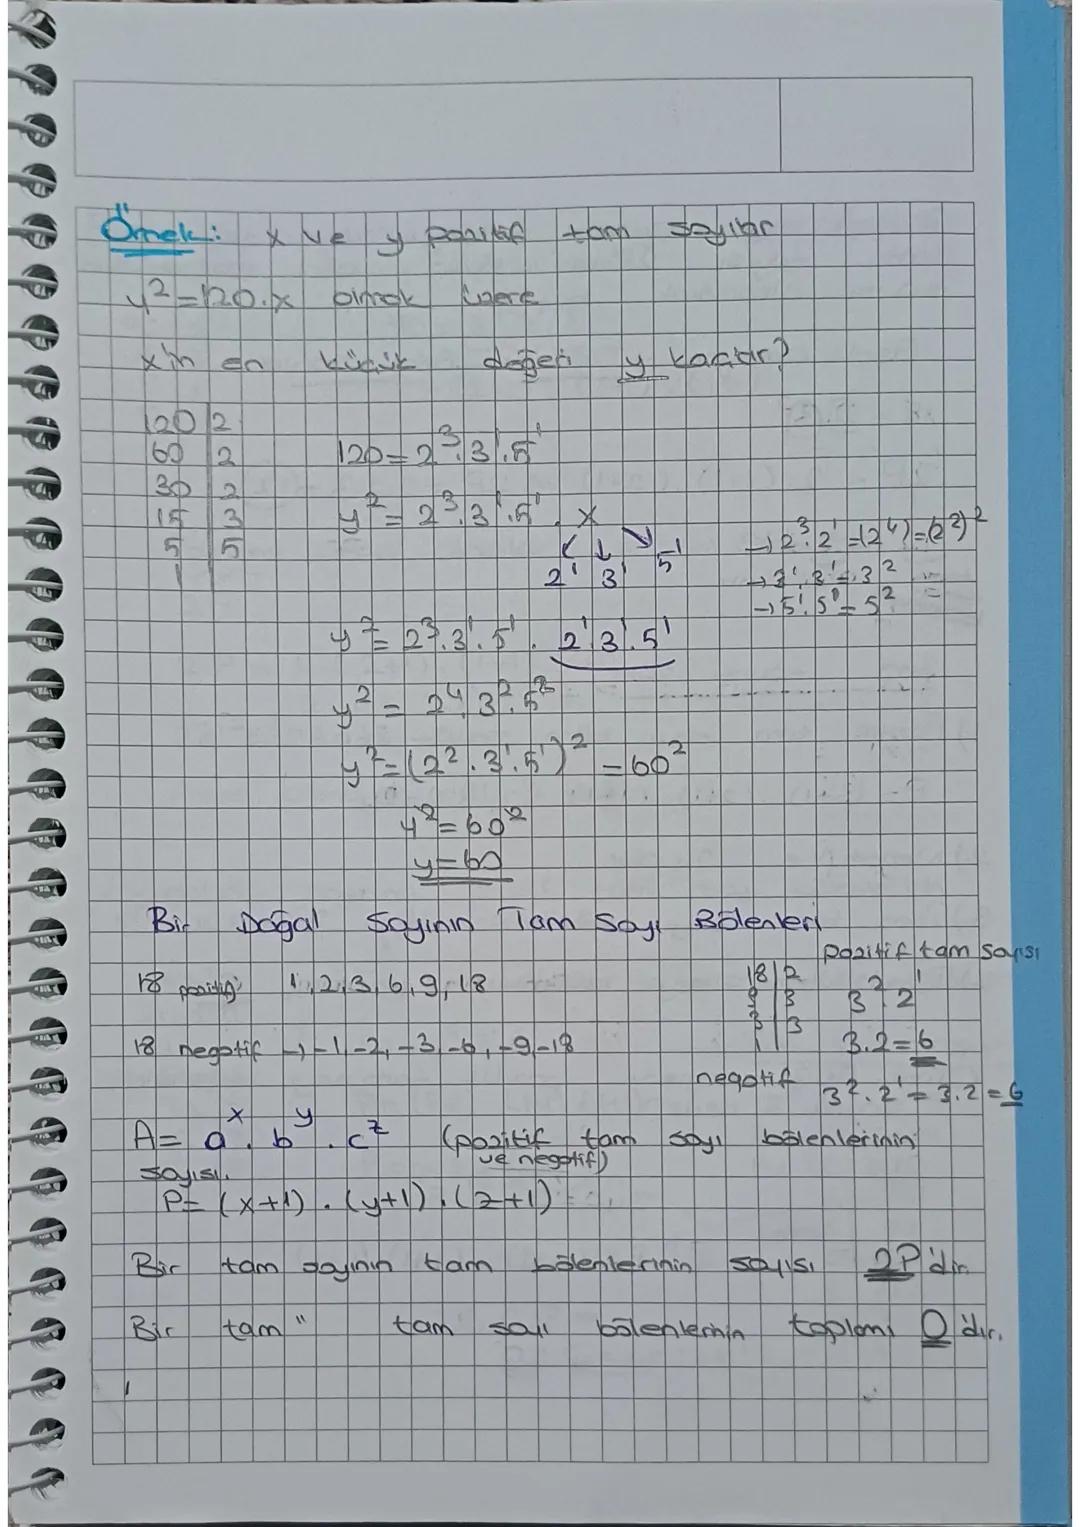 Örnek: x ve y pozitif tam sayılar
y²=120.x olmak üzere
x'in en küçük değeri y kaçtır?
120 2
60 2
30 2
15 3
5 5
1
120=2³.3¹.5¹
y²=2³.3¹.5¹.x
2¹ 3¹ 5¹
→2³.2¹=(2⁴)=(2²)²
→3¹.3¹=3²
→5¹.5¹=5²
y²=2³.3¹.5¹.2¹.3¹.5¹
y²=2⁴.3².5²
y²=(2².3¹.5¹)²=60²
y²=60²
y=60
Bir Doğal Sayının Tam Sayı Bölenleri
pozitif tam sayısı
18 pozitif 1,2,3,6,9,18
18 2
9 3
3 3
1
3² 2¹
3.2=6
18 negatif → -1,-2,-3,-6,-9,-18
negatif 3².2¹=3.2=6
A=aˣ.bʸ.cᶻ (pozitif tam sayı bölenlerinin
ve negatif)
sayısı.
P=(x+1).(y+1).(z+1)
Bir tam sayının tam bölenlerinin sayısı 2P'dir.
Bir tam " tam sayı bölenlerinin toplamı 0'dır.